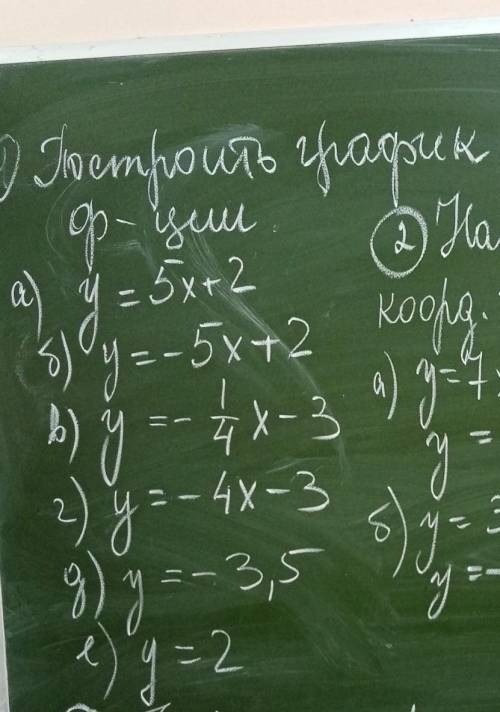 1) Построить график
ф-ции
а) y = 5x + 2
б) y = - 5x + 2
в) y = - 1/4 x - 3
г) y = - 4x - 3
д) y = - 3,5
е) y = 2
2
коорд.
а) y = 7
y =
б) y = 3
y = -